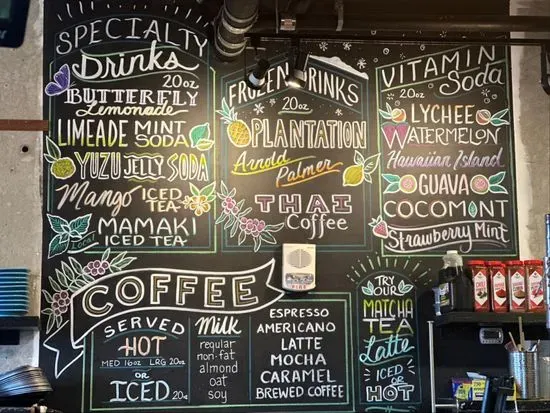 SPECIALTY
Drinks
20oz
BUTTERFLY
Lemonade
LIMEADE MINT SODA
YUZU JELLY SODA
Mango ICED TEA
Local
MAMAKI
ICED TEA
FROZEN DRINKS
20oz
PLANTATION
Arnold
Palmer
THAI
Coffee
VITAMIN
20oz Soda
LYCHEE
WATERMELON
Hawaiian Island
GUAVA
COCOMINT
Strawberry Mint
COFFEE
SERVED
HOT
MED 16oz LRG 20oz
OR
ICED 20oz
Milk
regular
non-fat
almond
oat
soy
ESPRESSO
AMERICANO
LATTE
MOCHA
CARAMEL
BREWED COFFEE
FIRE
TRY OUR
MATCHA
TEA
Latte
ICED
or
HOT